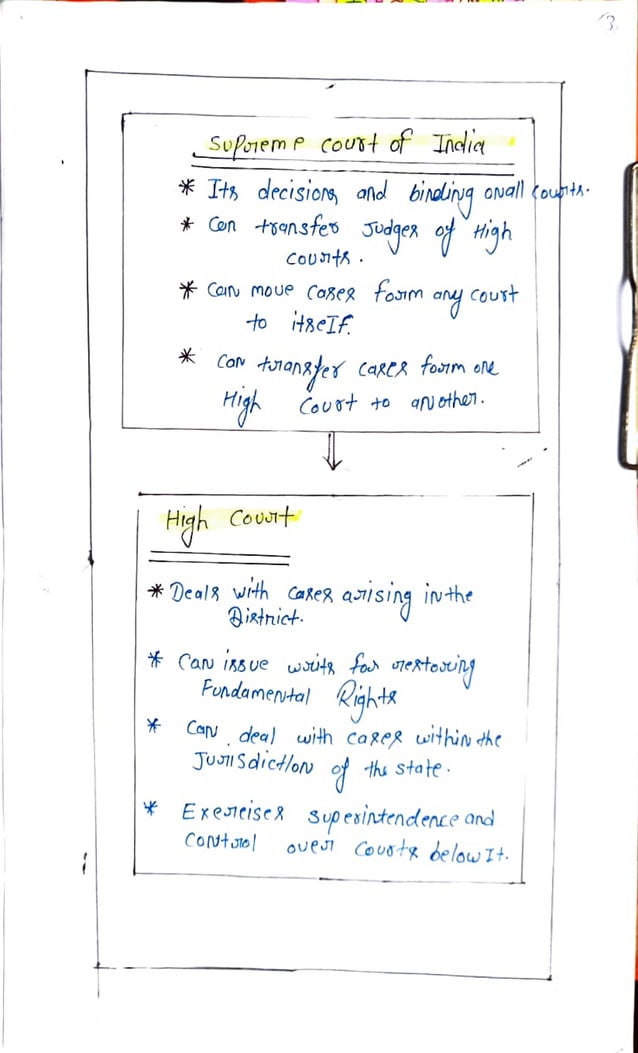 13.
Supreme court of India
* Its decisions and binding on all courts.
* Can transfer Judges of High
courts.
* Can move cases form any court
to itself.
* Can transfer cases form one
High Court to another.
High Court
* Deals with cases arising in the
District.
* Can issue writs for restoring
Fundamental Rights
* Can deal with cases within the
Jurisdiction of the state.
* Exercises superintendence and
Control over Courts below It.